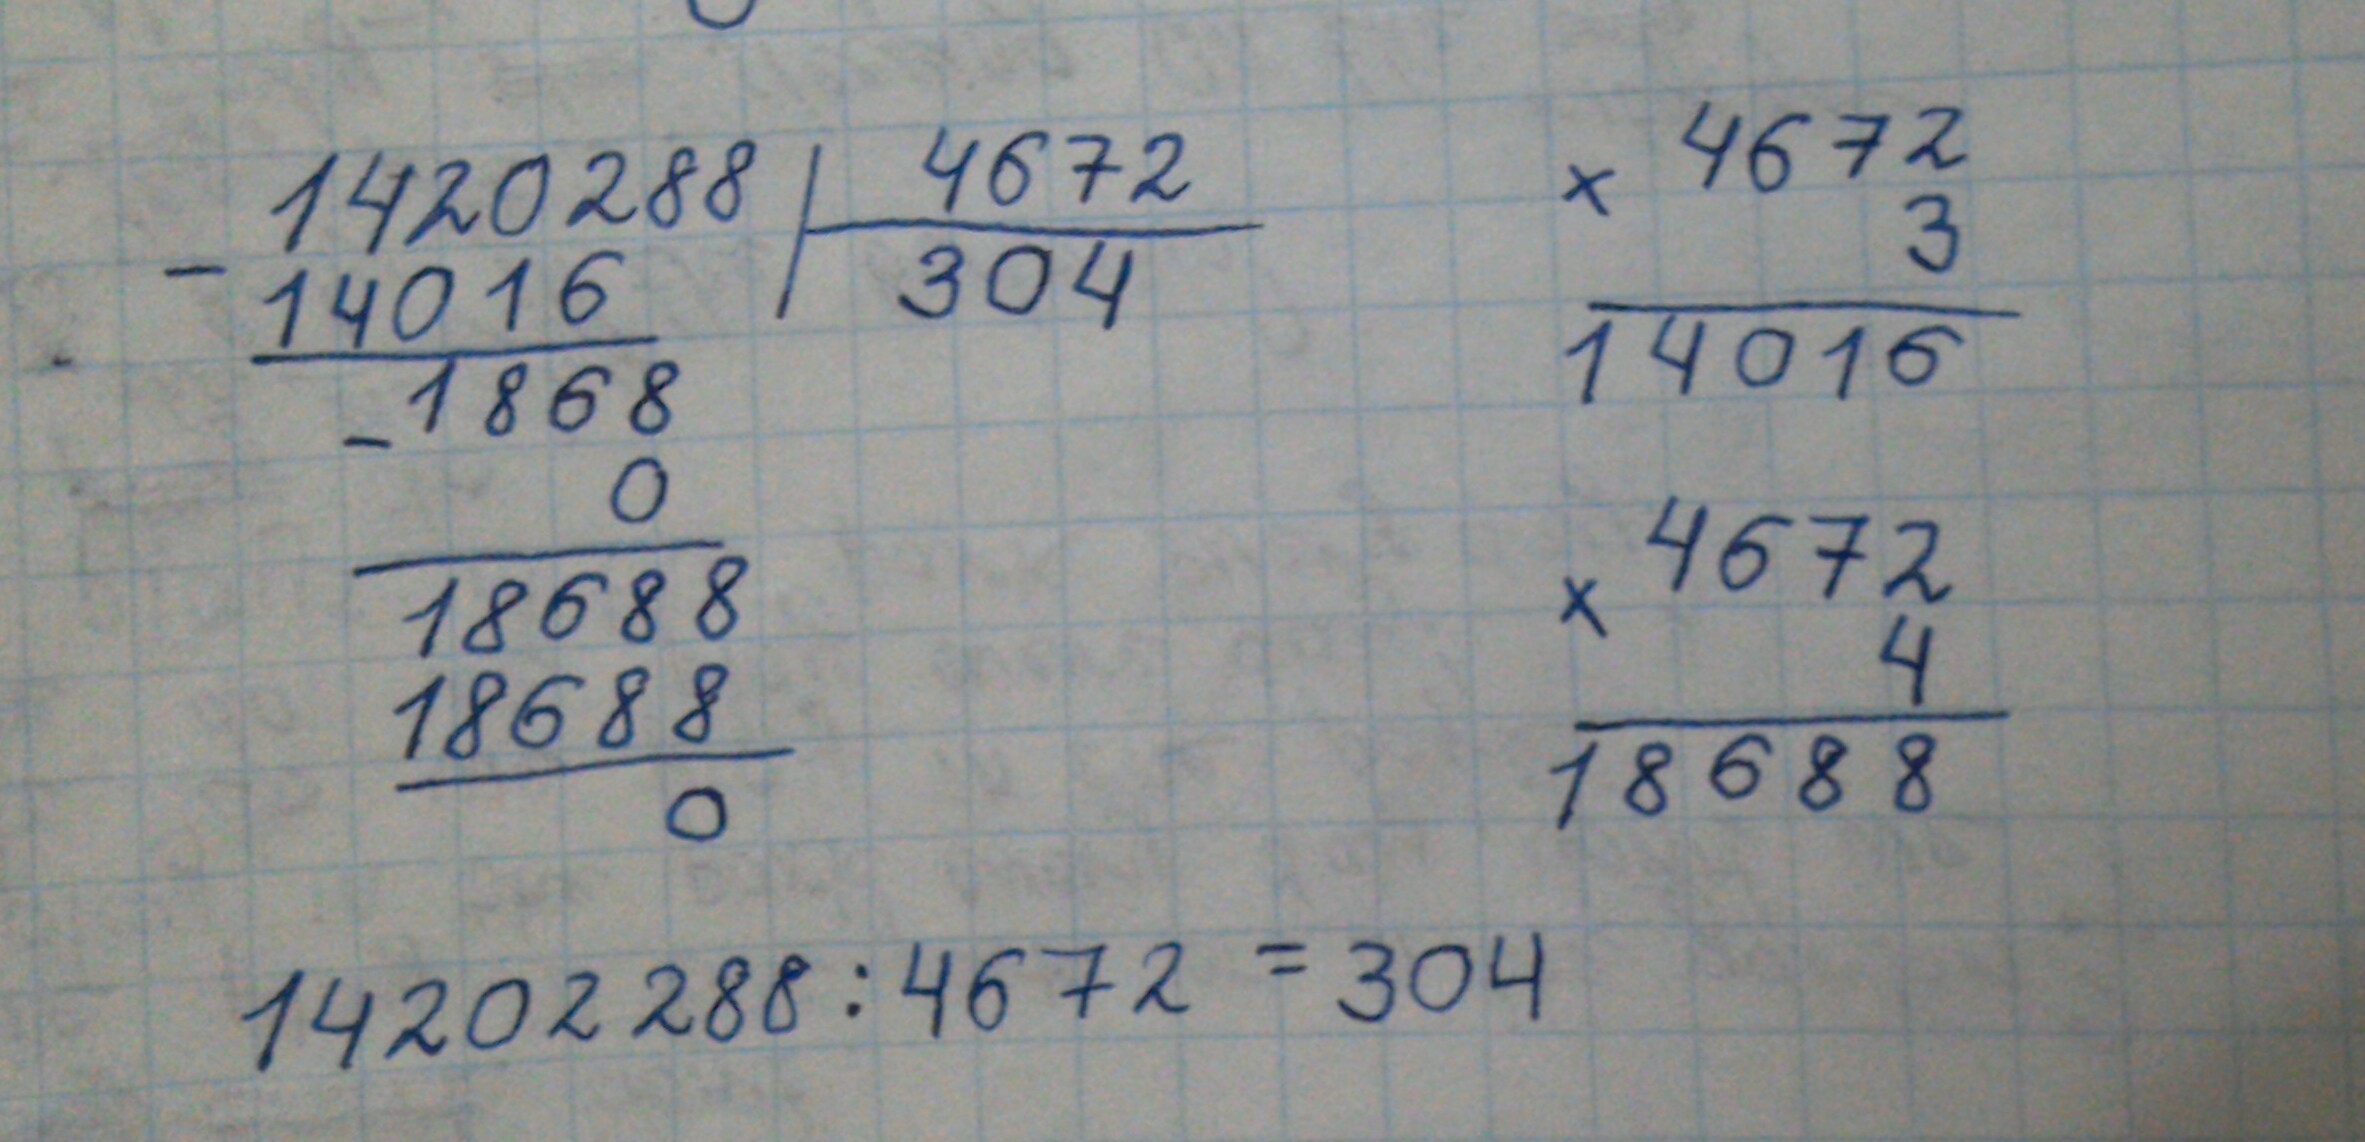 1420288 | 4672
- 14016 304
- 1868
0
18688
18688
0
× 4672
3
14016
× 4672
4
18688
14202288:4672 = 304